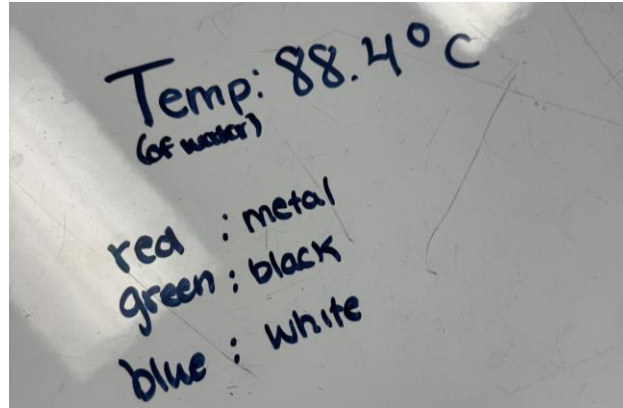 Temp: 88.4°C
(of water)
red : metal
green : black
blue : white